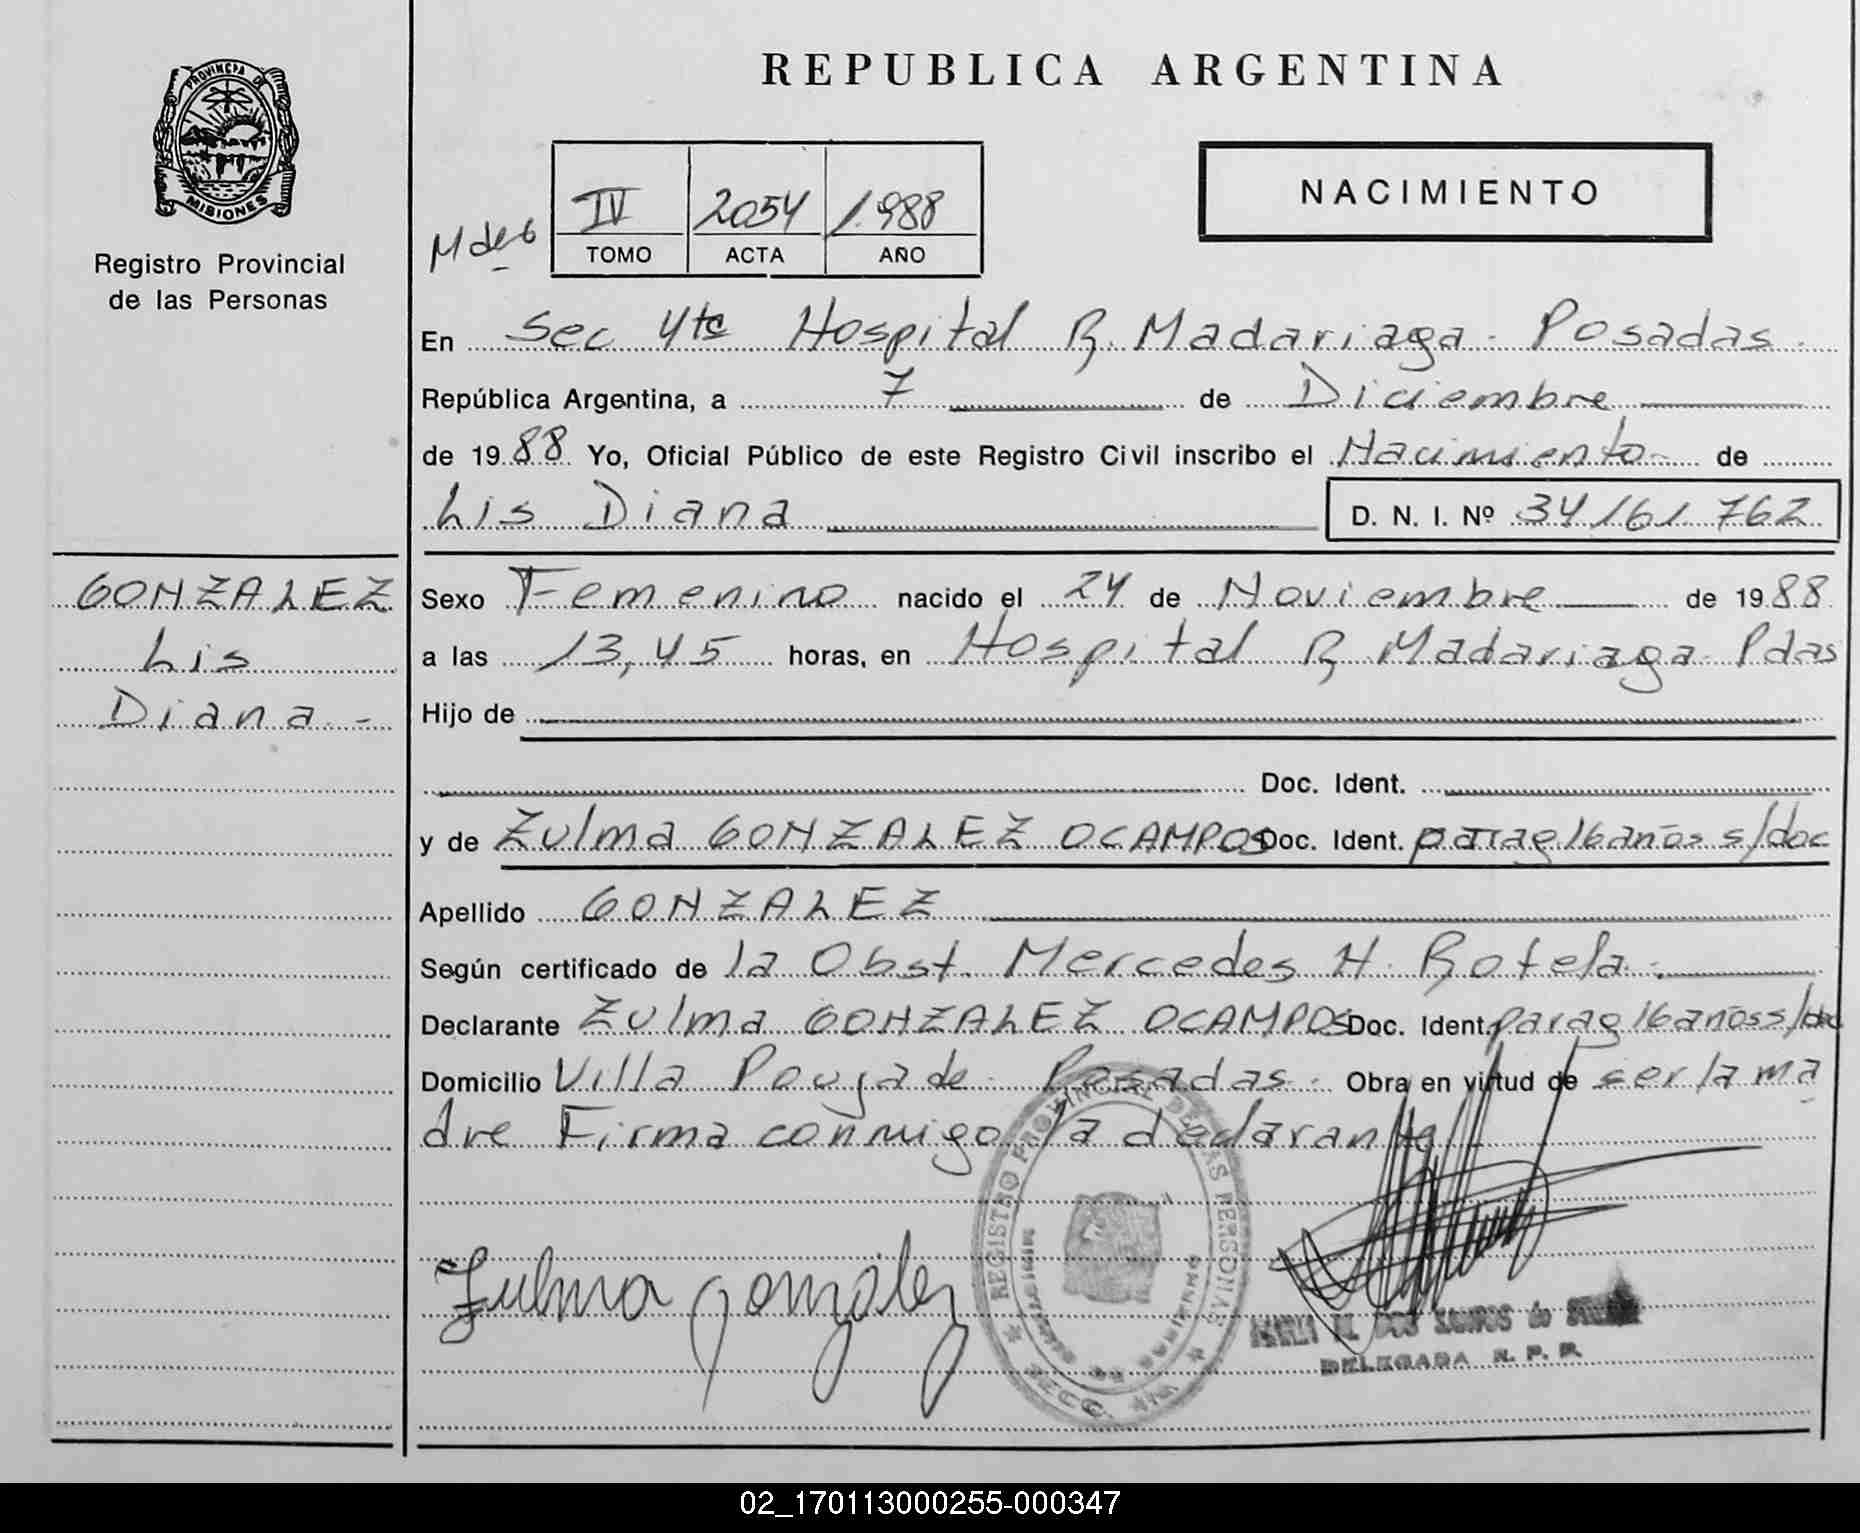 REPUBLICA ARGENTINA
PROVINCIA DE
MISIONES
Registro Provincial
de las Personas
IV 2054 1.988
TOMO ACTA AÑO
NACIMIENTO
En Sec 4ta Hospital R. Madariaga - Posadas -
República Argentina, a 7 de Diciembre
de 1988 Yo, Oficial Público de este Registro Civil inscribo el Nacimiento - de
Lis Diana D. N. I. Nº 34161762
GONZALEZ
Lis
Diana -
Sexo Femenino nacido el 24 de Noviembre de 1988
a las 13,45 horas, en Hospital R. Madariaga - Pdas
Hijo de
Doc. Ident.
y de Zulma GONZALEZ OCAMPOS Doc. Ident. parag 16 años s/doc
Apellido GONZALEZ
Según certificado de la Obst. Mercedes N. Rotela.
Declarante Zulma GONZALEZ OCAMPOS Doc. Ident. parag 16 años s/doc
Domicilio Villa Poujade - Posadas - Obra en virtud de ser la ma
dre Firma conmigo la declarante
Zulma González
REGISTRO PROVINCIAL DE LAS PERSONAS
DOS SANTOS de
DELEGADA R. P. P.
02_170113000255-000347